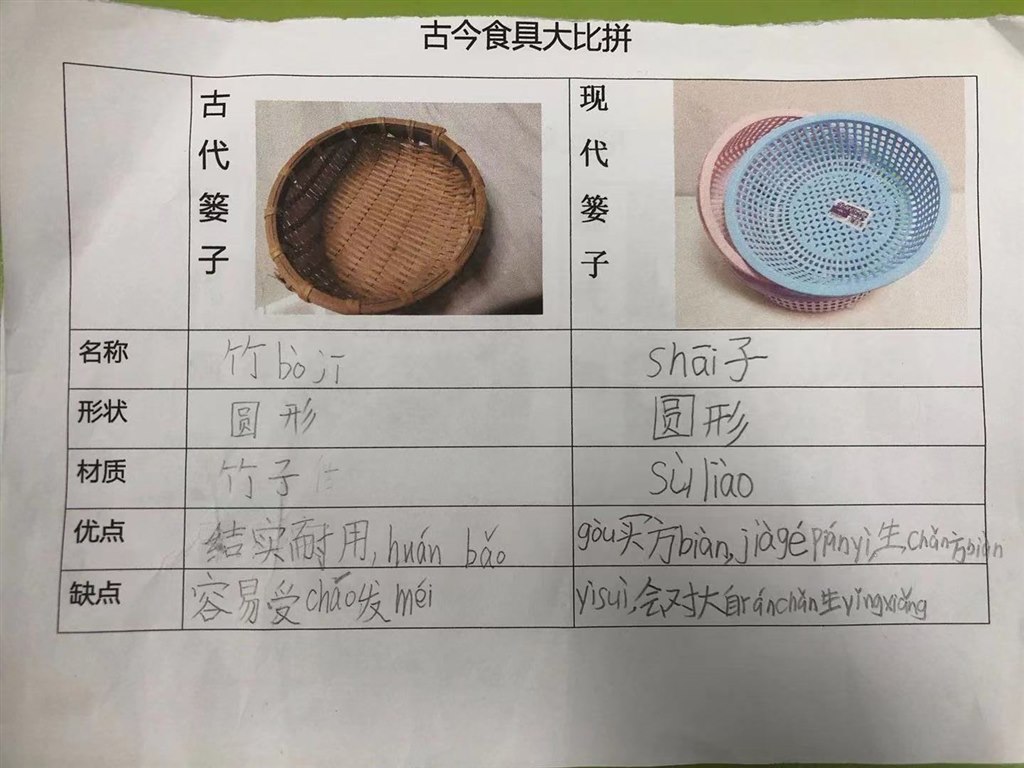 古今食具大比拼
古代篓子
现代篓子
名称 竹bò jī shāi子
形状 圆形 圆形
材质 竹子 sùliào
优点 结实耐用,huán bǎo gòu买方biàn,jiàgé piányì,生chǎn方biàn
缺点 容易受cháo发méi yìsuì,会对大自ránchǎn生yǐngxiǎng